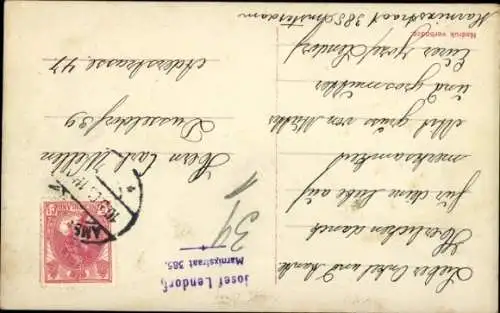 Marnixstraat 385 Amsterdam
Nadruk verboden
Lieber Onkel und Tante
Herlichen danck
für deine liebe auf
merksamkeit
viel grüss von Mutter
und Grosmutter
Eurer Josef Lendorf
Herrn Carl Wellen
Düsseldorf 39
Aderstrasse 47
AMST
31
Josef Lendorf
Marnixstraat 385.